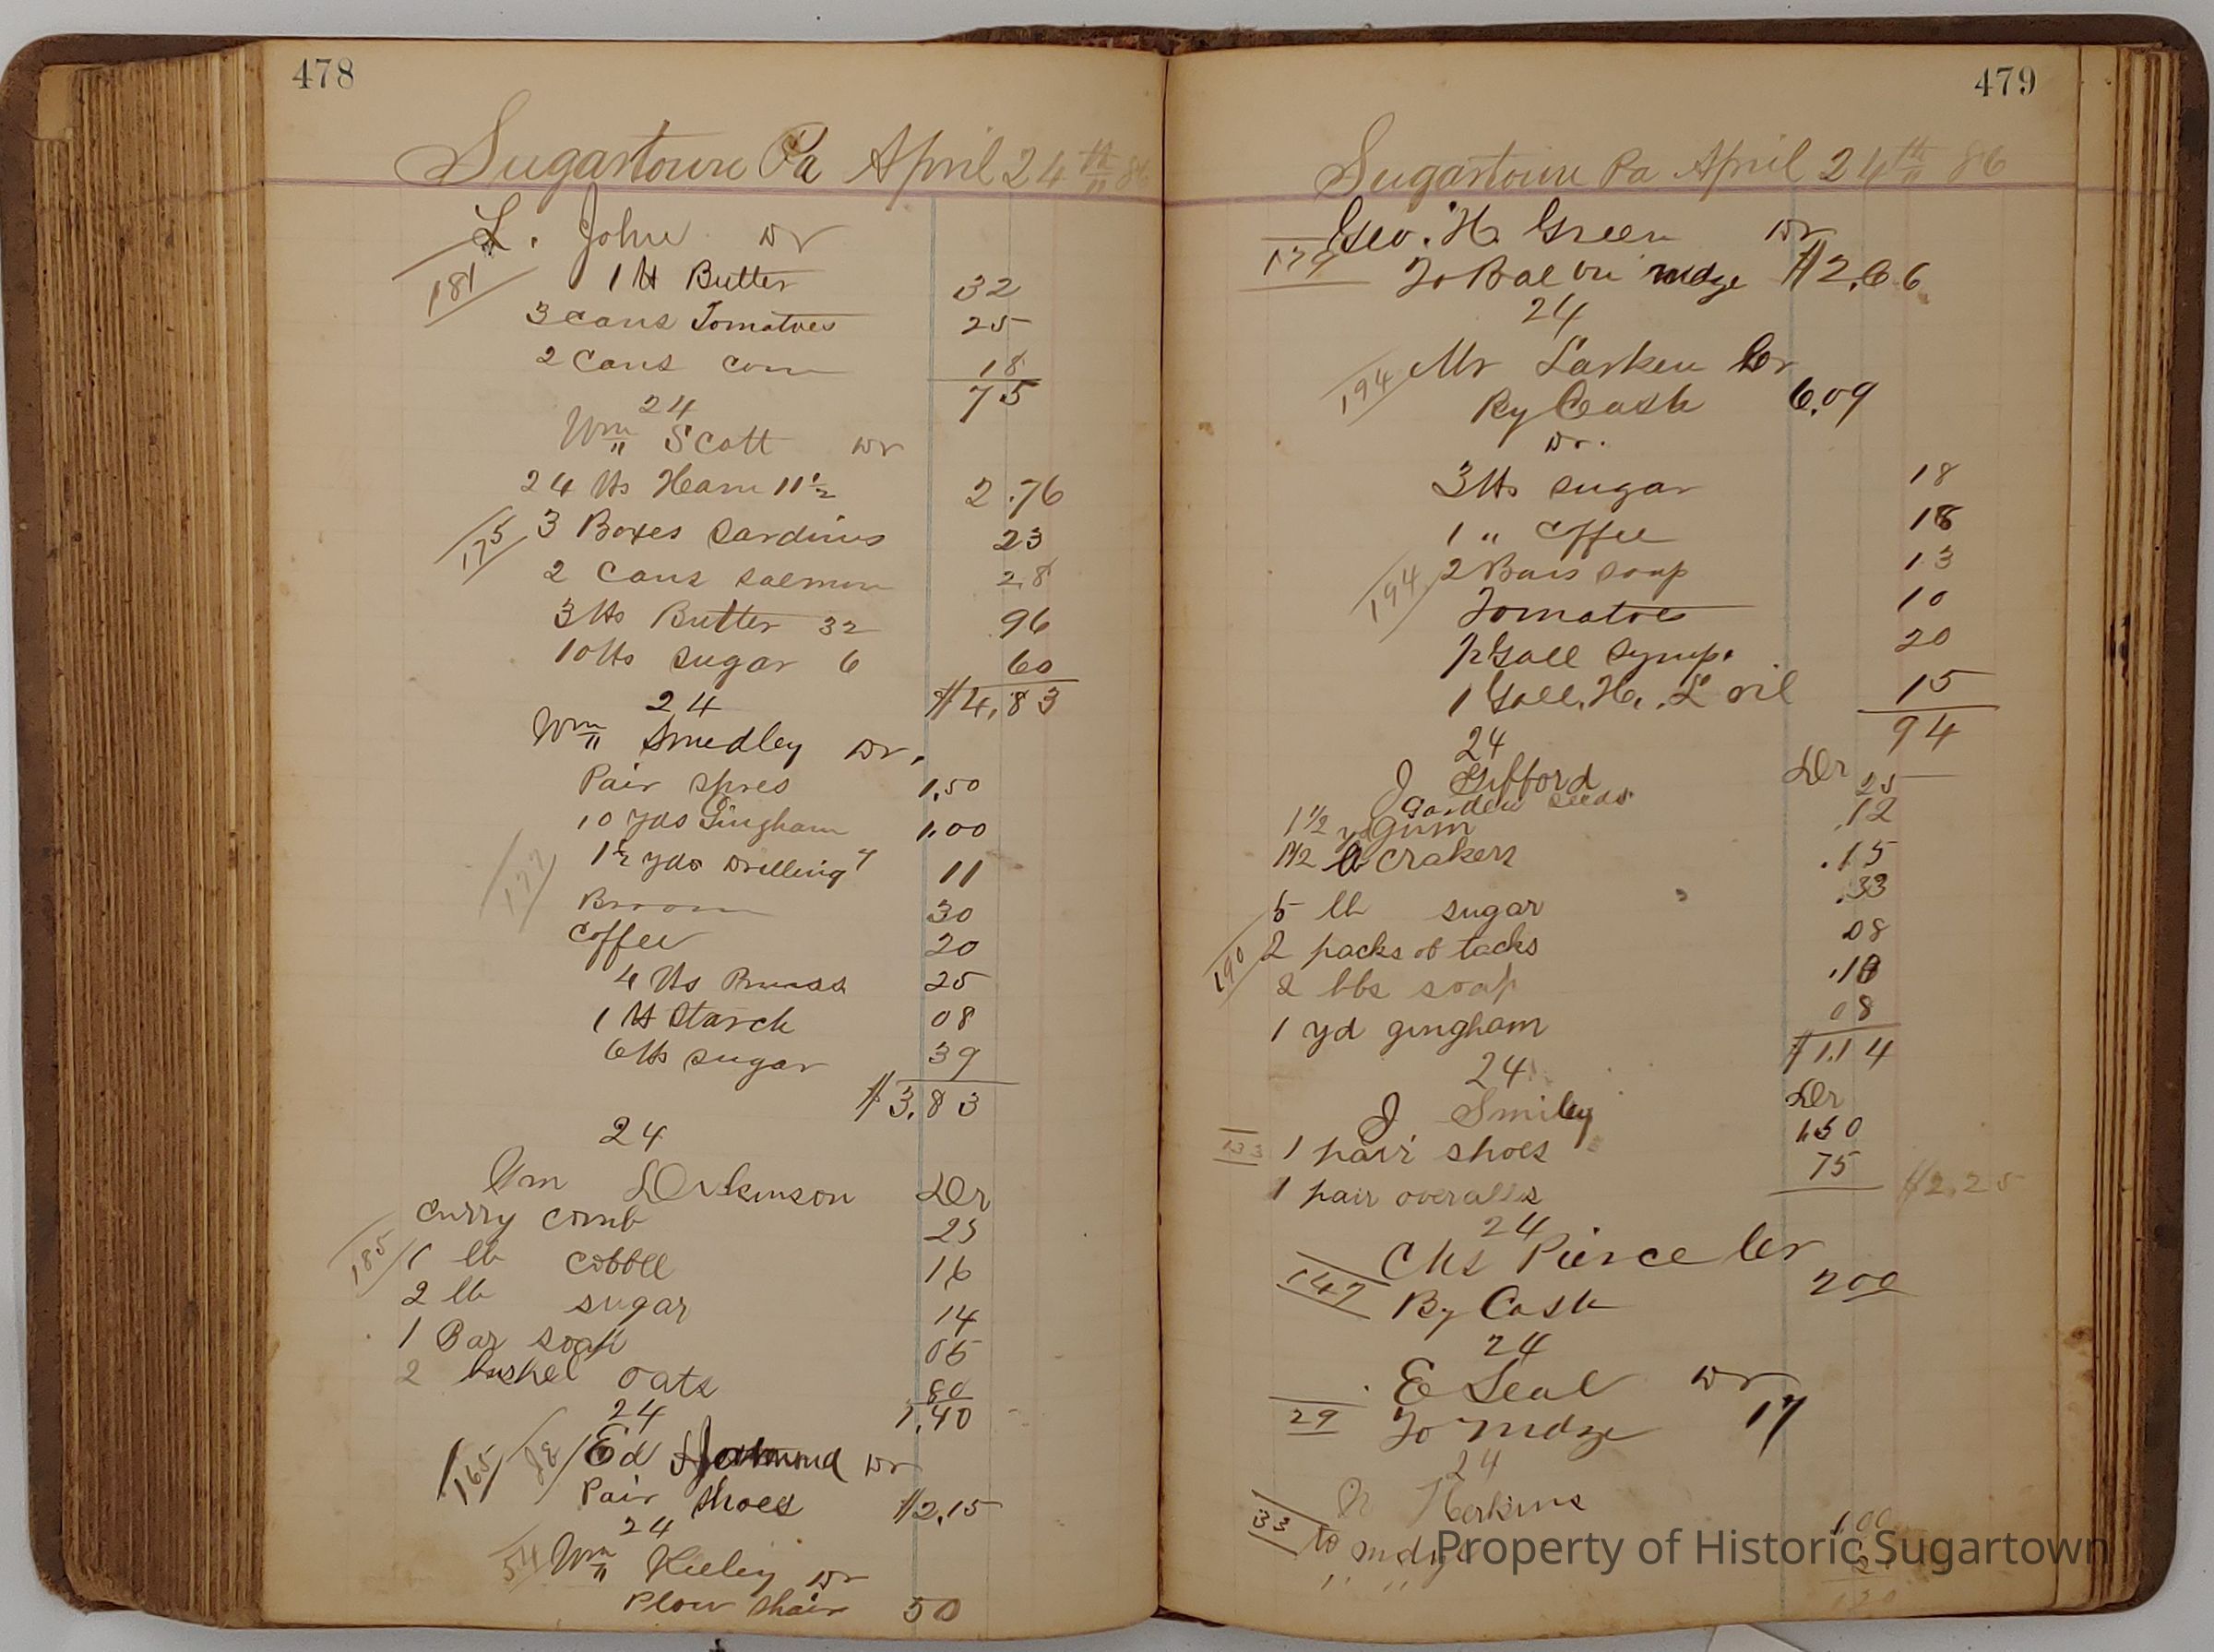 478
Sugartown Pa April 24th 86
L. John Dr
181
1 lb Butter 32
3 cans Tomatoes 25
2 Cans corn 18
75
24
Wm Scott Dr
24 lbs Ham 11½ 2.76
175
3 Boxes Sardines 23
2 Cans Salmon 28
3 lbs Butter 32 96
10 lbs sugar 6 60
$4,83
24
Wm Smedley Dr.
Pair Shoes 1,50
10 yds Gingham 1,00
177
1½ yds Drilling 11
Broom 30
Coffee 20
4 lbs 25
1 lb Starch 08
6 lbs sugar 39
$3,83
24
Wm Dr
curry comb 25
185
1 lb coffee 16
2 lb sugar 14
1 Bar soap 05
2 bushel oats 80
1,40
24
165
Ed Dr
Pair Shoes $2,15
24
54
Wm Keeley Dr
Plow shair 50
479
Sugartown Pa April 24th 86
Geo. H. Green Dr
179
To Bal on mdze $2,66
24
194
Mr Larken Cr
By Cash 6.09
Dr.
3 lbs sugar 18
1 " Coffee 18
194
2 Bars soap 13
Tomatoes 10
½ Gall Syrup. 20
1 Gall. H. L oil 15
94
24
J Gifford Dr
Garden seeds 25
1½ yd Gum .12
1½ lb crakers .15
5 lb sugar .33
190
2 packs of tacks 08
2 lbs soap
1 yd gingham 08
$1.14
24
J Smiley Dr
133
1 pair shoes 1.50
1 pair overalls 75
$2.25
24
Chs Pierce Cr
147
By Cash 200
24
E Seal Dr
29
To mdze 17
24
Harkins
33
to mdze 1,00
" "
Property of Historic Sugartown